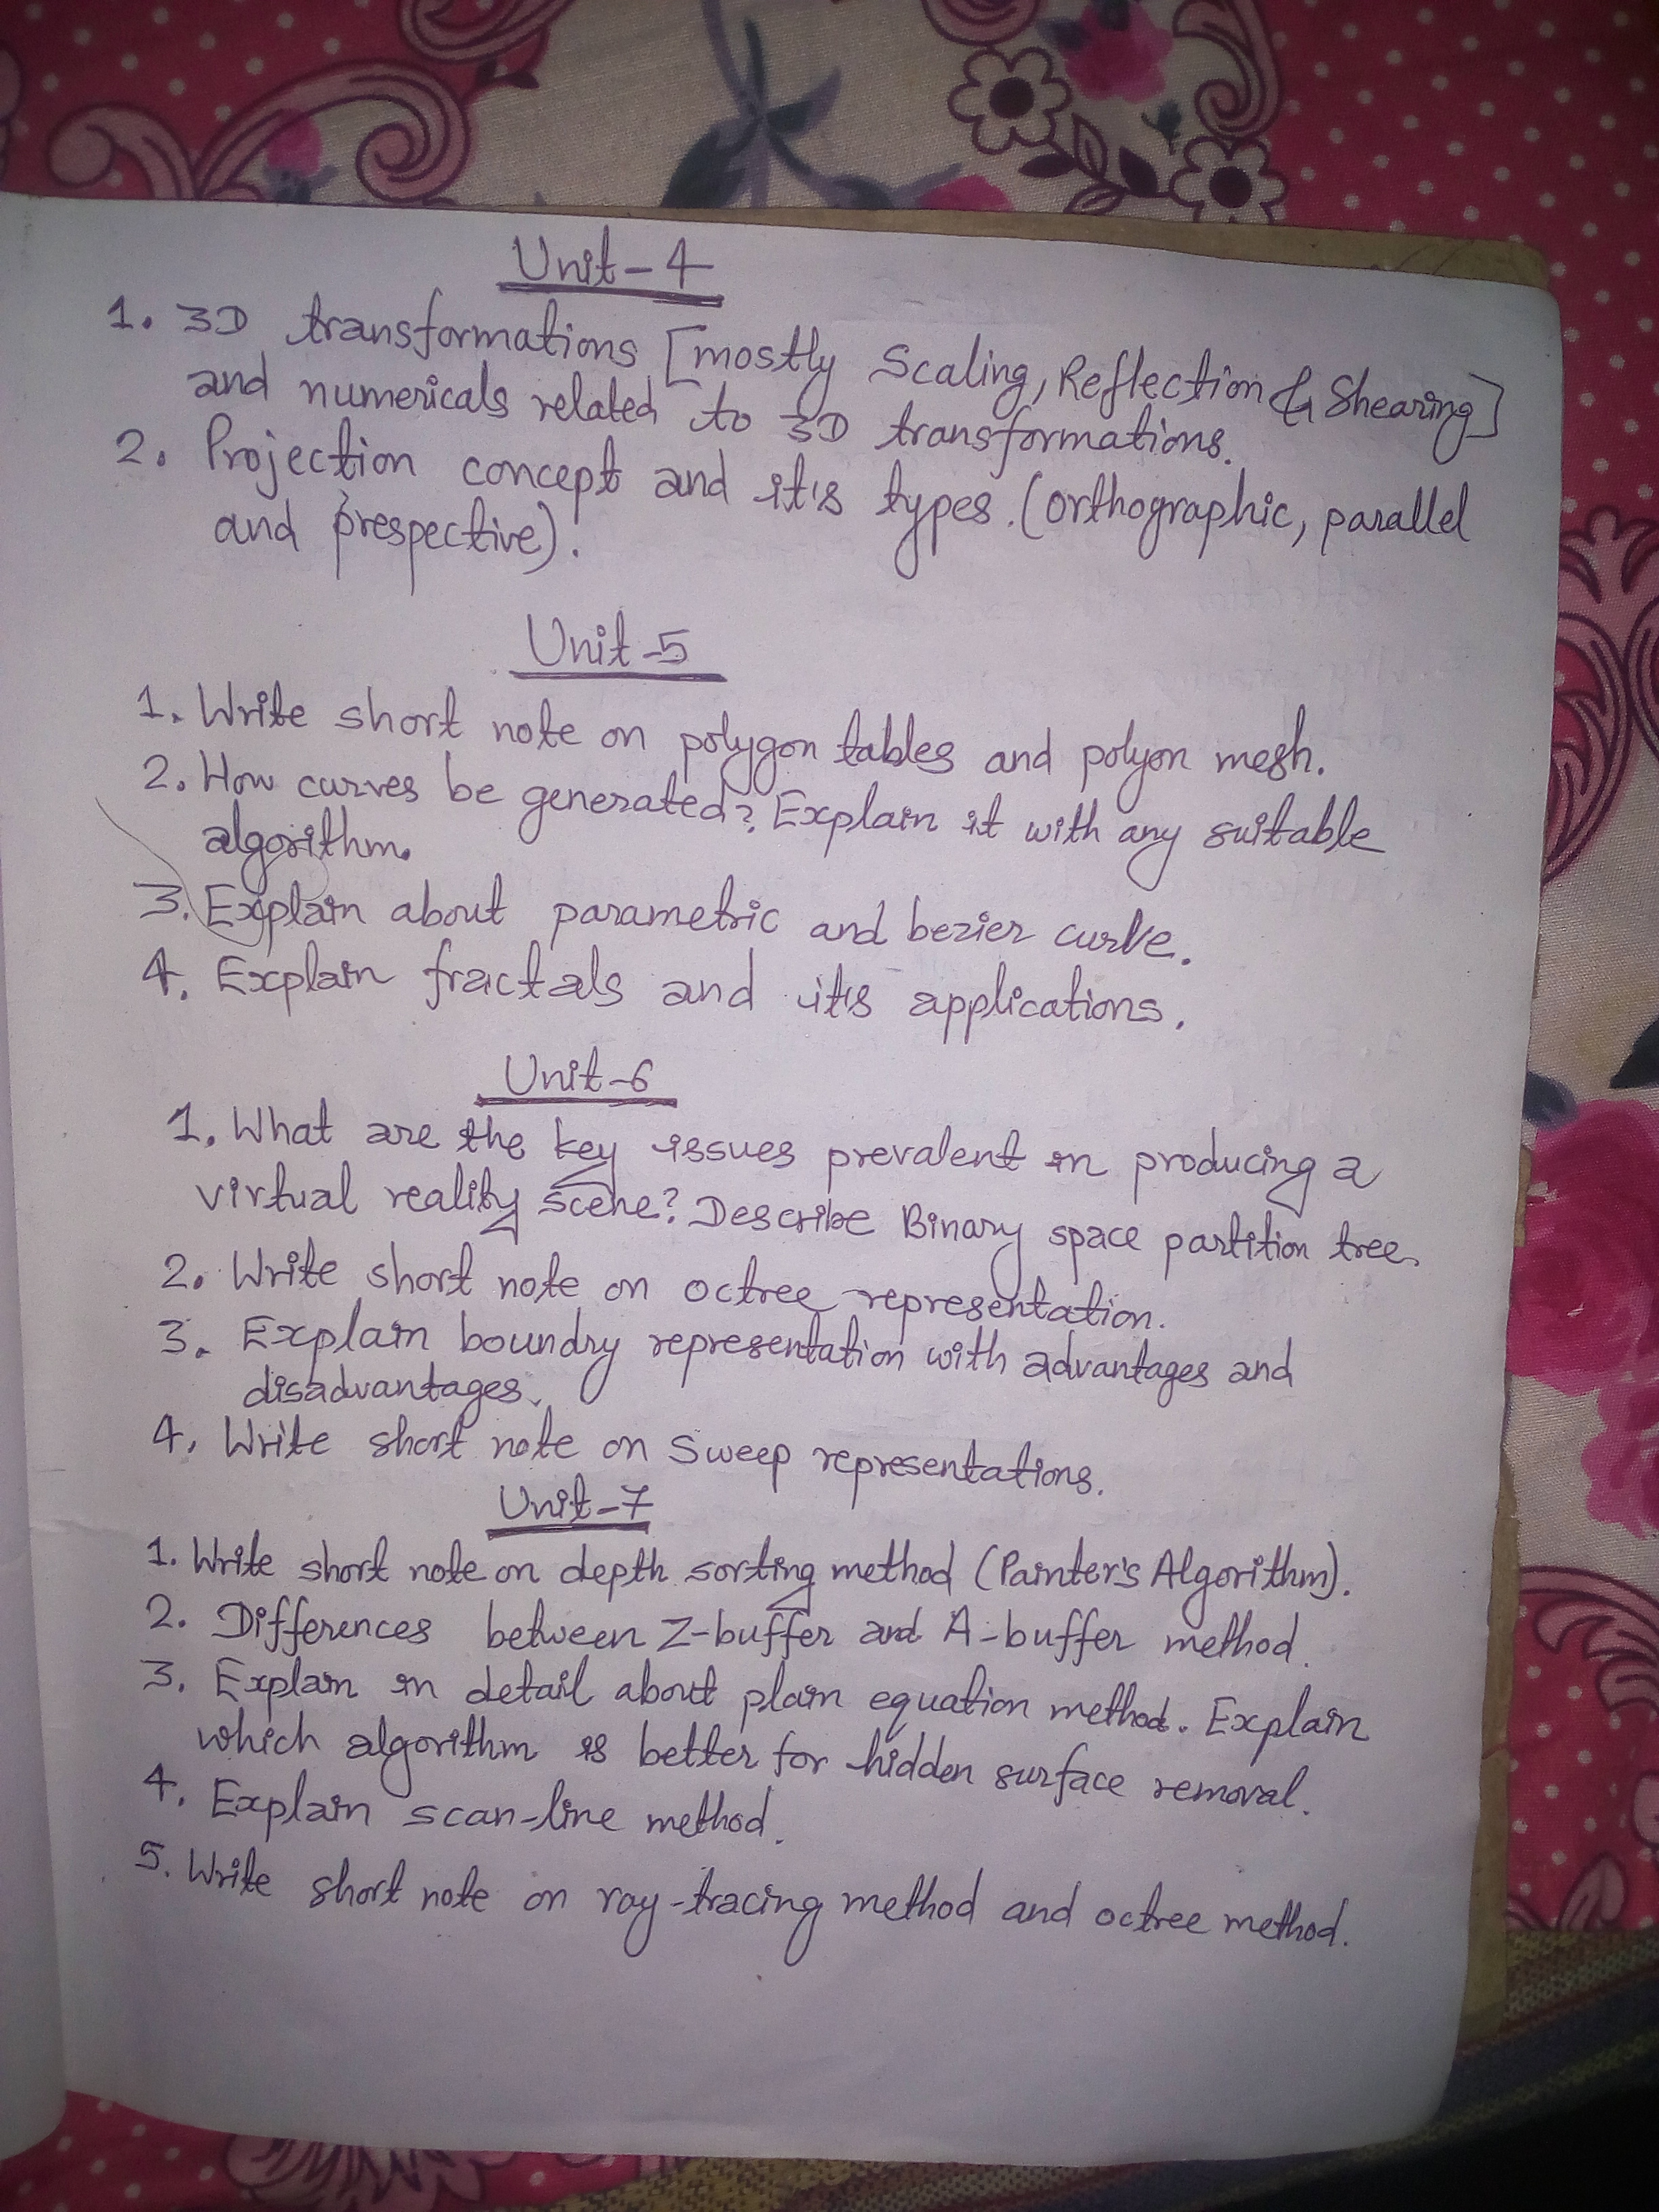 Unit-4
1. 3D transformations [mostly Scaling, Reflection & Shearing]
and numericals related to 3D transformations.
2. Projection concept and it's types. (orthographic, parallel
and prespective).
Unit-5
1. Write short note on polygon tables and polyon mesh.
2. How curves be generated? Explain it with any suitable
algorithm.
3. Explain about parametric and bezier curve.
4. Explain fractals and it's applications.
Unit-6
1. What are the key issues prevalent in producing a
virtual reality scene? Describe Binary space partition tree.
2. Write short note on octree representation.
3. Explain boundry representation with advantages and
disadvantages.
4. Write short note on Sweep representations.
Unit-7
1. Write short note on depth sorting method (Painter's Algorithm).
2. Differences between Z-buffer and A-buffer method.
3. Explain in detail about plain equation method. Explain
which algorithm is better for hidden surface removal.
4. Explain scan-line method.
5. Write short note on ray-tracing method and octree method.